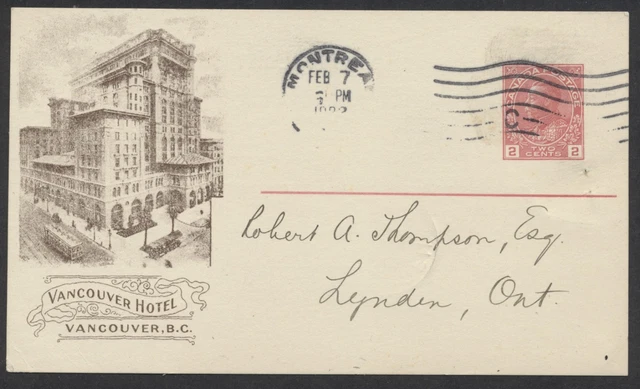 MONTREA
FEB 7
PM
CANADA POSTAGE
2 TWO CENTS 2
Robert A. Thompson, Esq.
Lynden, Ont.
VANCOUVER HOTEL
VANCOUVER, B.C.